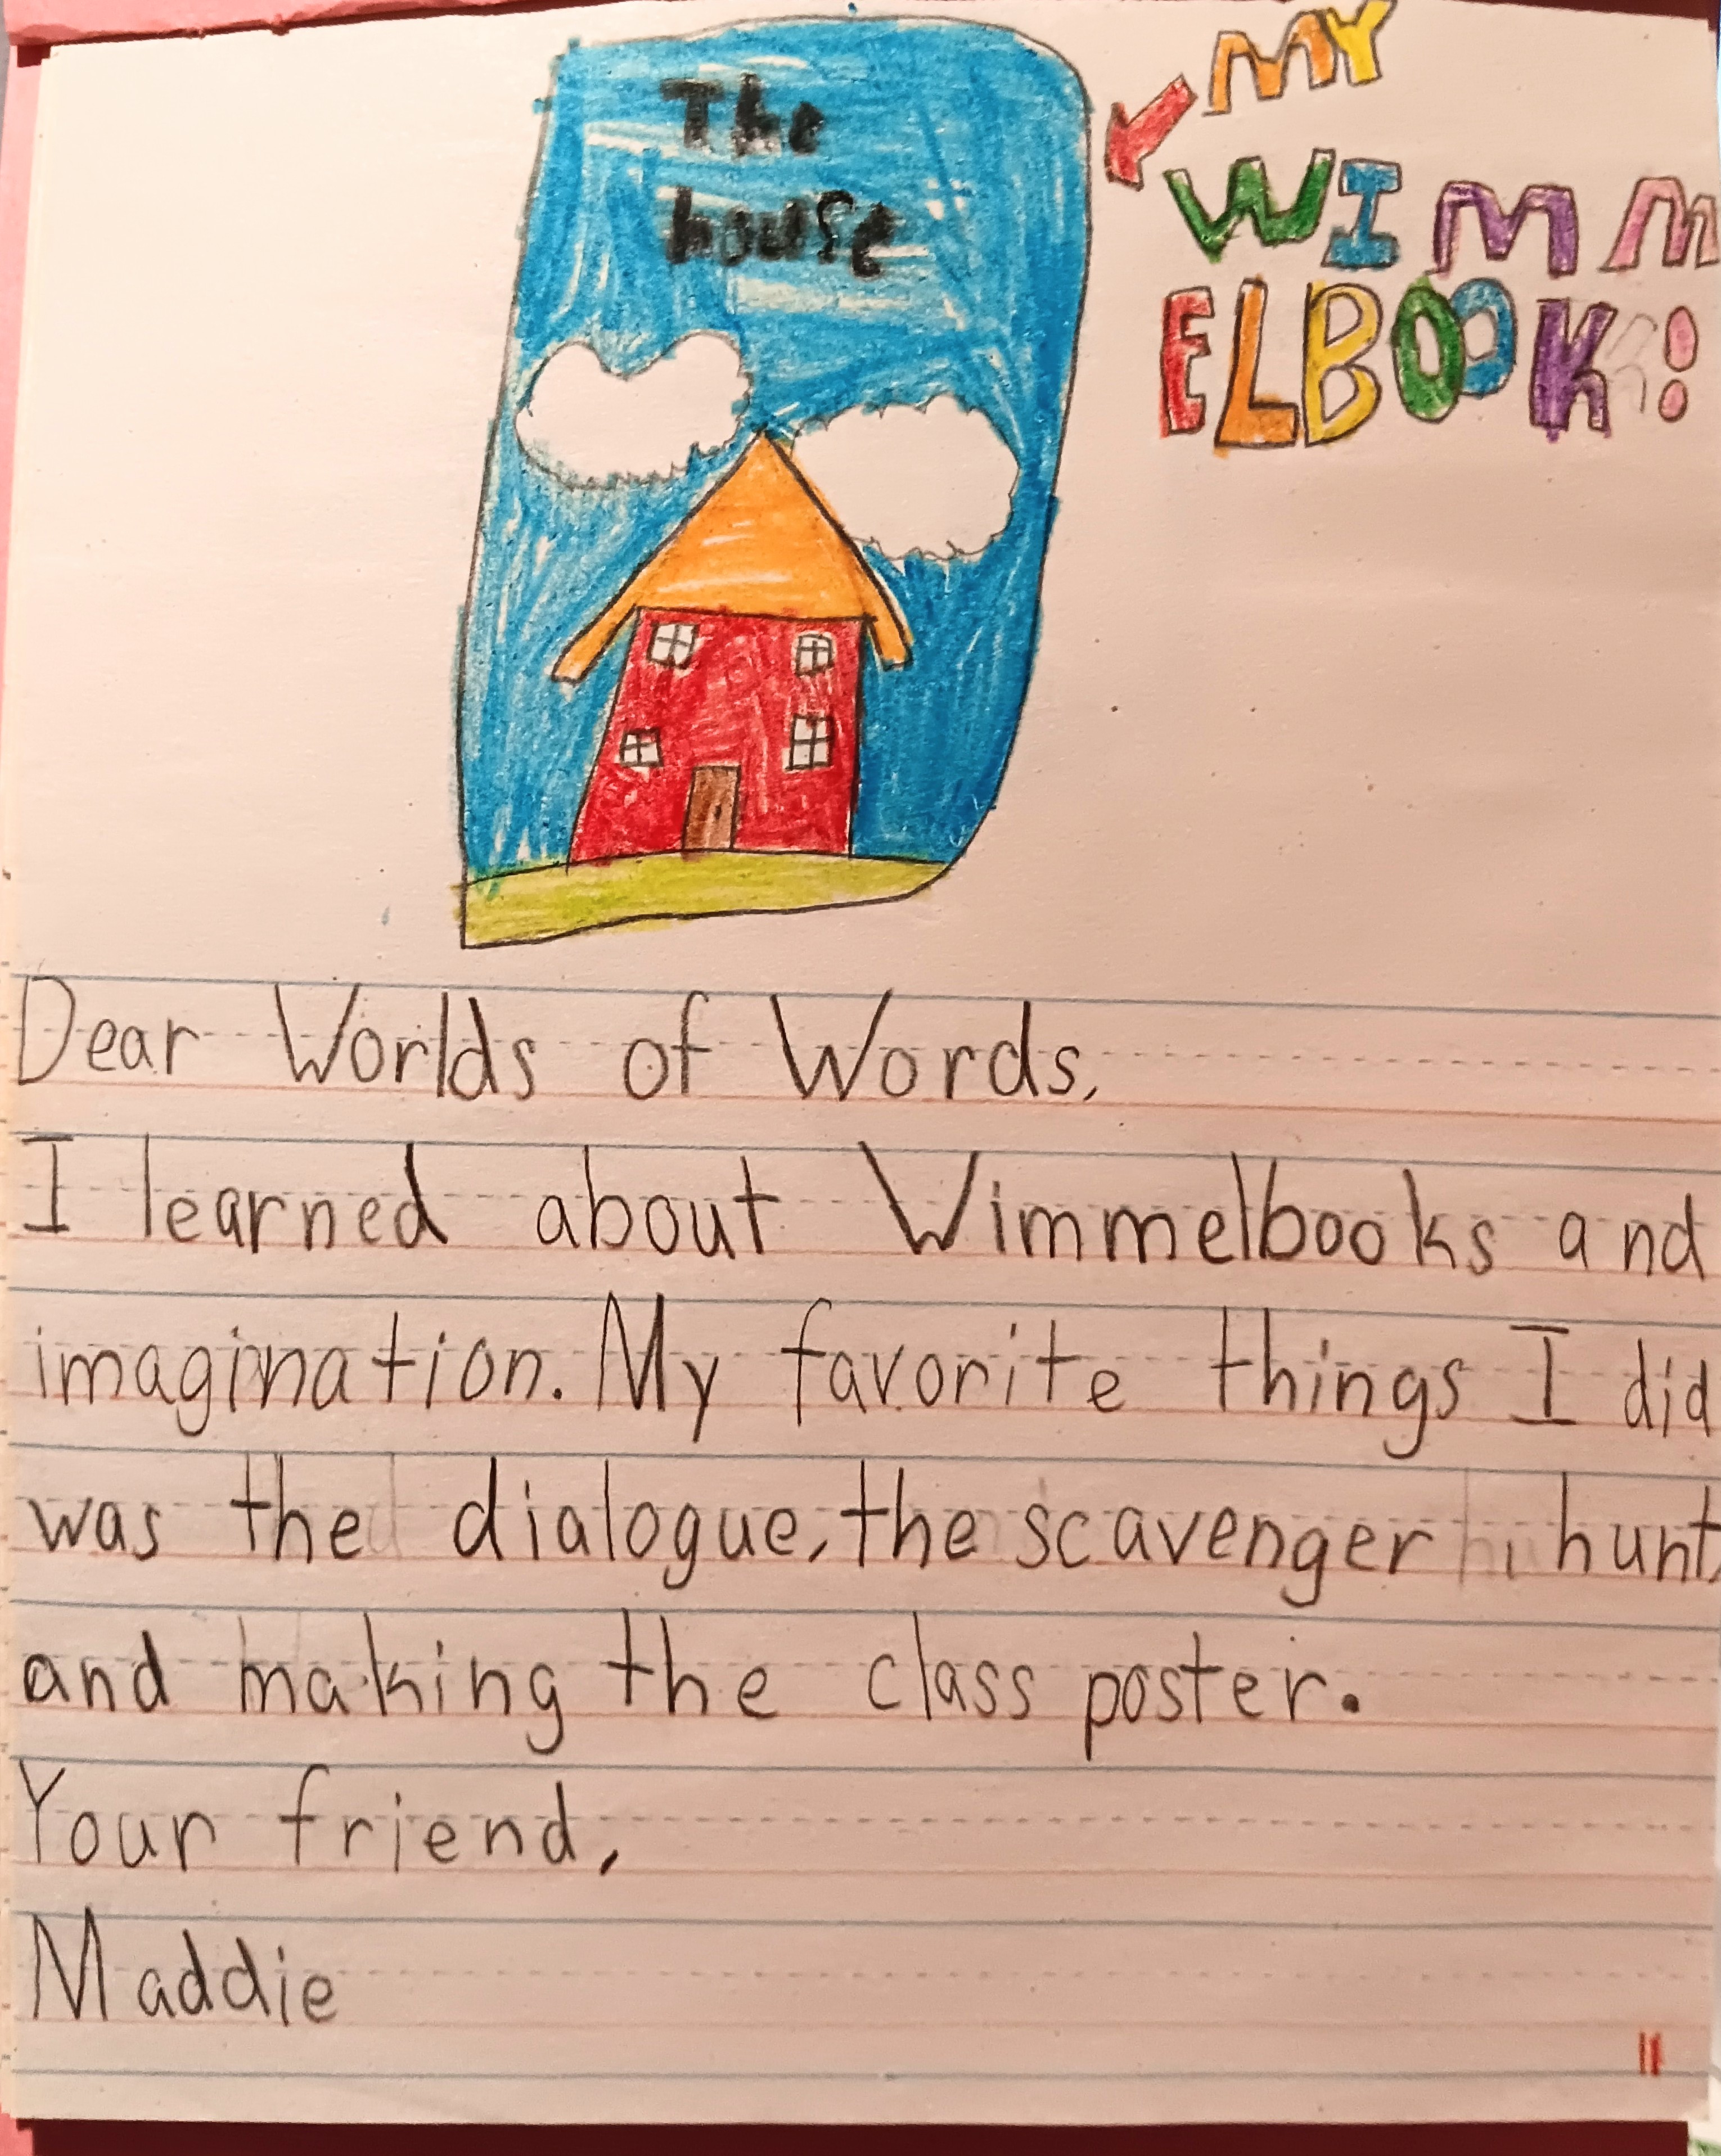 The
house
MY
WIMM
ELBOOK!
Dear Worlds of Words,
I learned about Wimmelbooks and
imagination. My favorite things I did
was the dialogue, the scavenger hunt,
and making the class poster.
Your friend,
Maddie
11